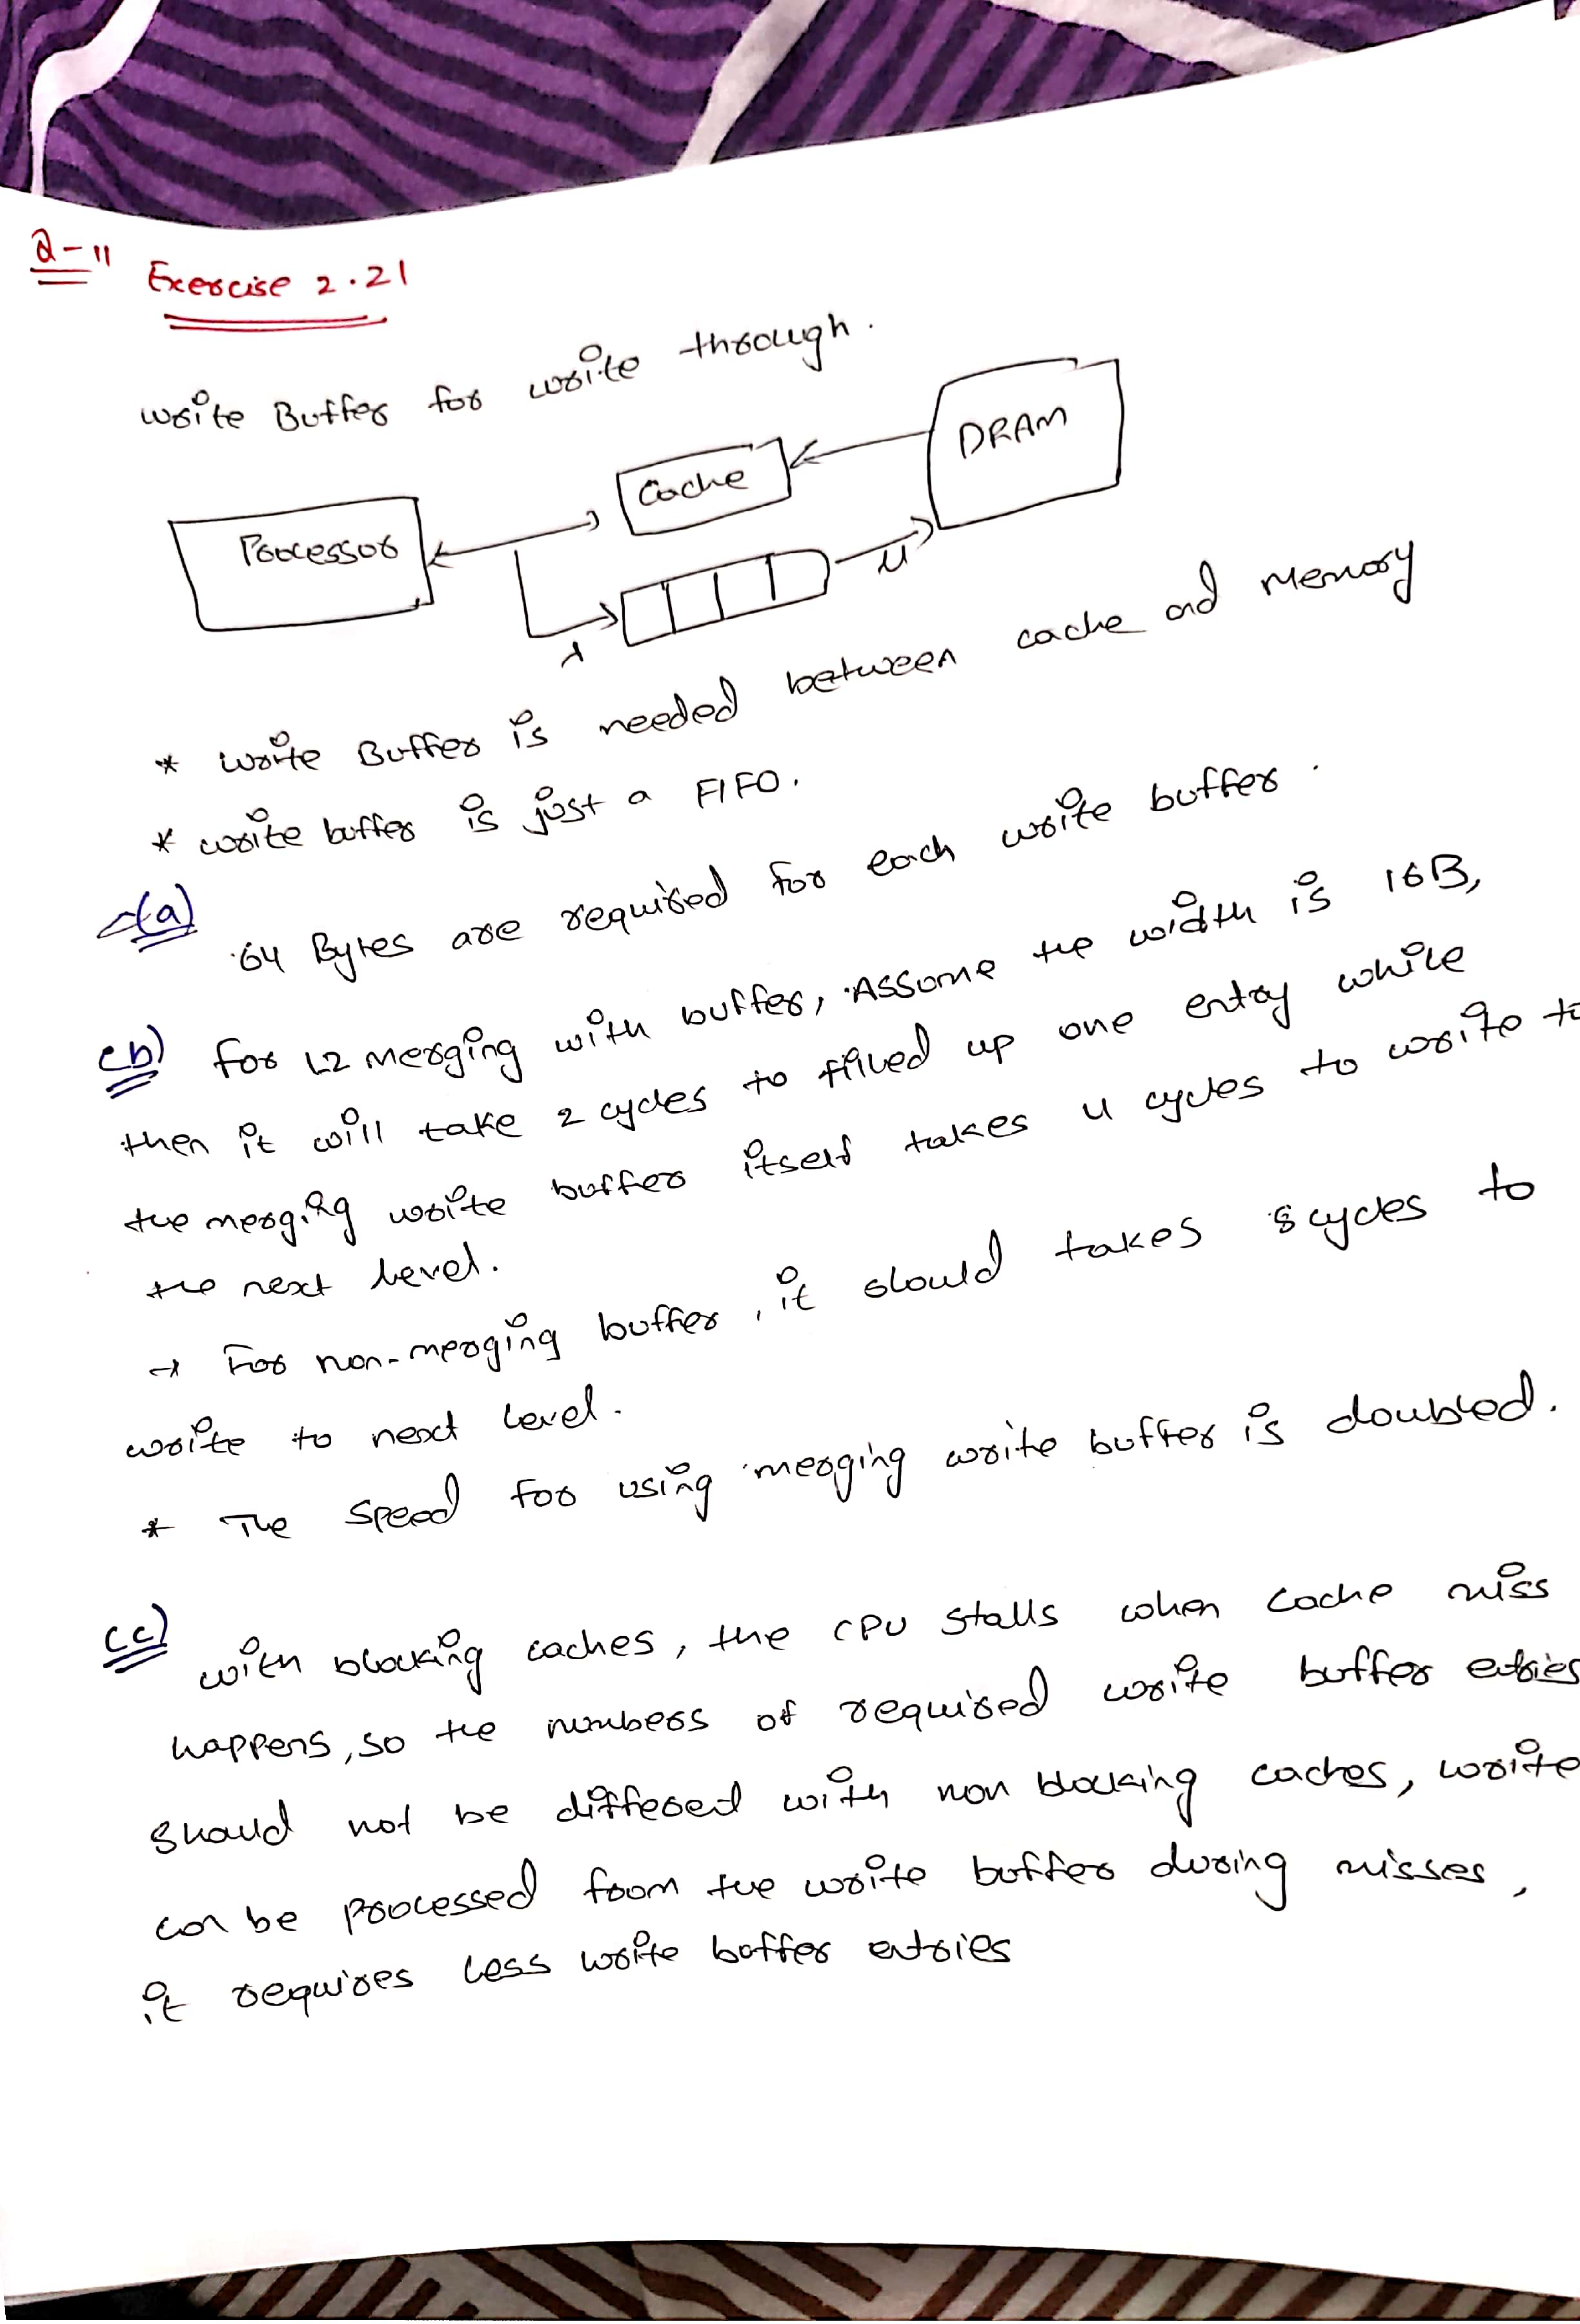 Q-11 Exercise 2.21
Write Buffer for write through.
Processor
Cache
DRAM
λ
μ
* Write Buffer is needed between cache and Memory
* write buffer is just a FIFO.
(a)
64 Bytes are required for each write buffer.
(b) For L2 merging with buffer, Assume the width is 16B,
then it will take 2 cycles to filled up one entry while
the merging write buffer itself takes 4 cycles to write to
the next level.
→ For non-merging buffer, it should takes 8 cycles to
write to next level.
* The speed for using merging write buffer is doubled.
(c)
with blocking caches, the CPU stalls when cache miss
happens, so the numbers of required write buffer entries
should not be different with non blocking caches, write
can be processed from the write buffer during misses,
it requires less write buffer entries